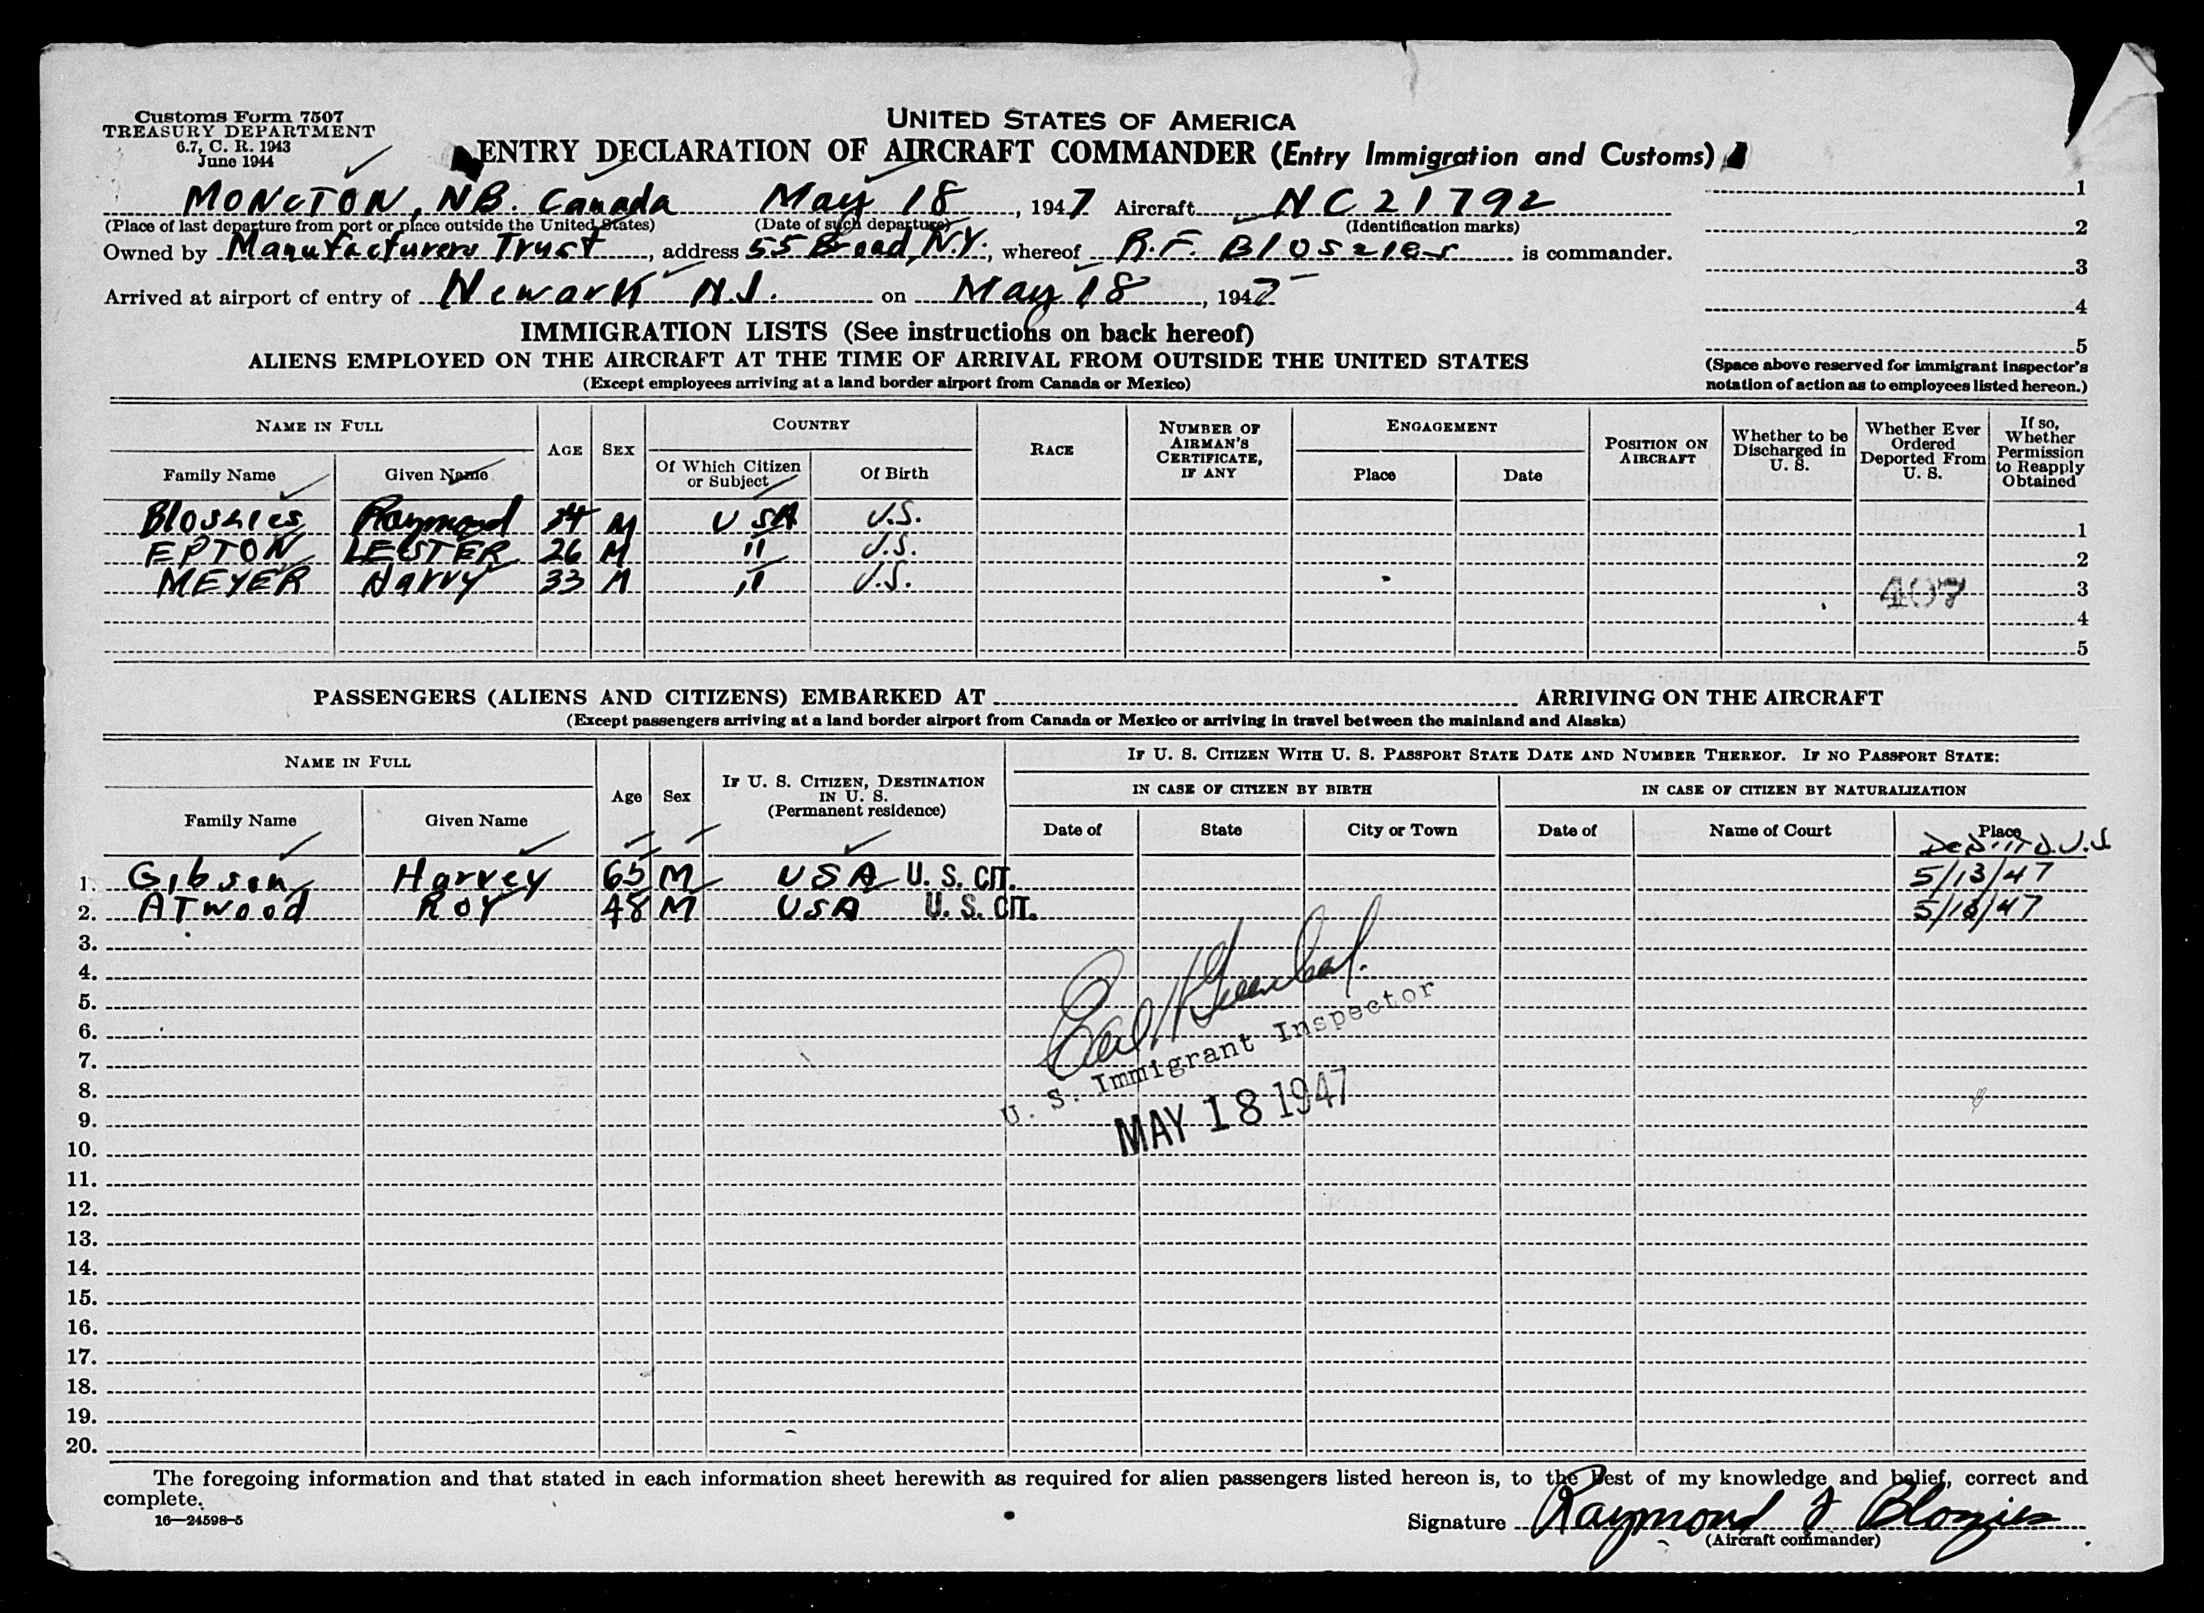 Customs Form 7507
TREASURY DEPARTMENT
6.7, C. R. 1943
June 1944
UNITED STATES OF AMERICA
ENTRY DECLARATION OF AIRCRAFT COMMANDER (Entry Immigration and Customs)
MONCTON, NB. Canada May 18, 1947 Aircraft NC21792
(Place of last departure from port or place outside the United States) (Date of such departure) (Identification marks)
Owned by Manufacturers Trust, address 55 Broad, N.Y.; whereof R.F. Bloszies is commander.
Arrived at airport of entry of Newark N.J. on May 18, 1947
1
2
3
4
5
(Space above reserved for immigrant inspector's
notation of action as to employees listed hereon.)
IMMIGRATION LISTS (See instructions on back hereof)
ALIENS EMPLOYED ON THE AIRCRAFT AT THE TIME OF ARRIVAL FROM OUTSIDE THE UNITED STATES
(Except employees arriving at a land border airport from Canada or Mexico)
NAME IN FULL AGE SEX COUNTRY RACE NUMBER OF AIRMAN'S CERTIFICATE, IF ANY ENGAGEMENT POSITION ON AIRCRAFT Whether to be Discharged in U. S. Whether Ever Ordered Deported From U. S. If so, Whether Permission to Reapply Obtained
Family Name Given Name Of Which Citizen or Subject Of Birth Place Date
Bloszies Raymond 34 M USA U.S. 1
EPTON LESTER 26 M " U.S. 2
MEYER Harry 33 M " U.S. 407 3
4
5
PASSENGERS (ALIENS AND CITIZENS) EMBARKED AT ARRIVING ON THE AIRCRAFT
(Except passengers arriving at a land border airport from Canada or Mexico or arriving in travel between the mainland and Alaska)
NAME IN FULL Age Sex IF U. S. CITIZEN, DESTINATION IN U. S. (Permanent residence) IF U. S. CITIZEN WITH U. S. PASSPORT STATE DATE AND NUMBER THEREOF. IF NO PASSPORT STATE:
IN CASE OF CITIZEN BY BIRTH IN CASE OF CITIZEN BY NATURALIZATION
Family Name Given Name Date of State City or Town Date of Name of Court Place
1. Gibson Harvey 65 M USA U. S. CIT. 5/13/47
2. ATwood ROY 48 M USA U. S. CIT. 5/18/47
3.
4.
5.
6.
7.
8.
9.
10.
11.
12.
13.
14.
15.
16.
17.
18.
19.
20.
U. S. Immigrant Inspector
MAY 18 1947
The foregoing information and that stated in each information sheet herewith as required for alien passengers listed hereon is, to the best of my knowledge and belief, correct and
complete.
16—24598-5
Signature Raymond F Bloszies
(Aircraft commander)